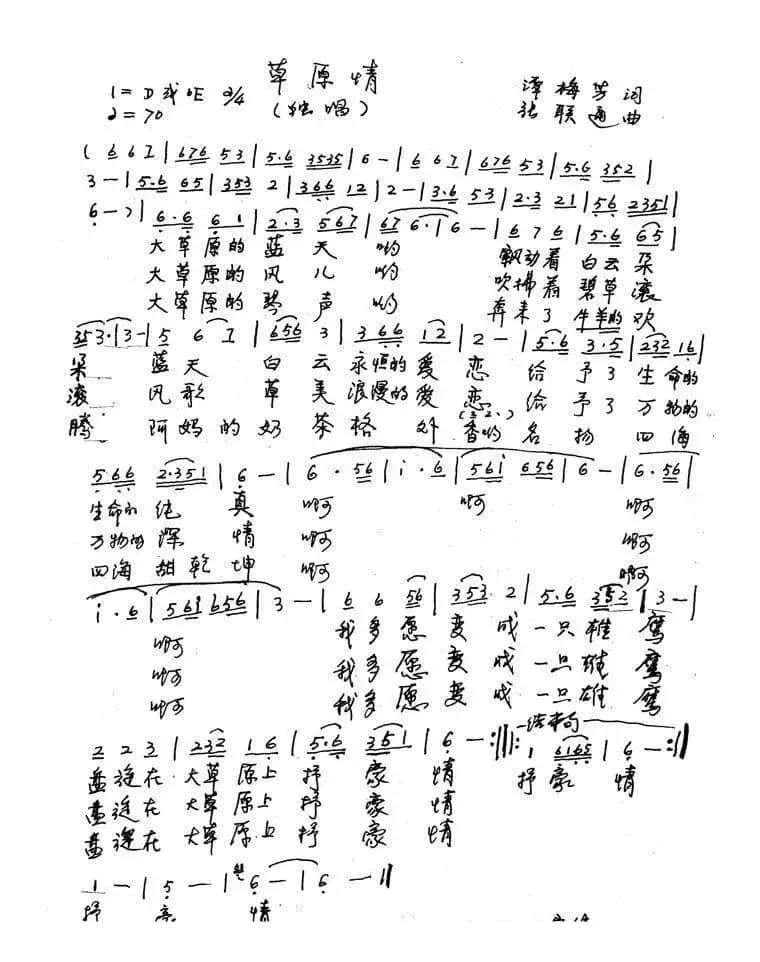 草原情
1=D或♭E 2/4
（独唱）
♩=70
谭梅芳词
张联通曲
( 6 6 i | 676 53 | 5·6 3535 | 6 - | 6 6 i | 676 53 | 5·6 352 |
3 - | 5·6 65 | 353 2 | 366 12 | 2 - | 3·6 53 | 2·3 21 | 56 2351 |
6 - ) | 6·6 61 | 2·3 567 | 67 6· | 6 - | 6 7 6 | 5·6 65 |
大草原的蓝天哟 飘动着白云朵
大草原的风儿哟 吹拂着碧草滚
大草原的琴声哟 奔来了牛羊的欢
353· | 3 - | 5 6 i | 656 3 | 3 66 12 | 2 - | 5·6 3·5 | 232 16 |
朵 蓝天白云永恒的爱恋给予了生命的
滚 风歌草美浪漫的爱恋给予了万物的
腾 阿妈的奶茶格外香哟名扬四海
566 2·351 | 6 - | 6· 56 | i· 6 | 56i 656 | 6 - | 6· 56 |
生命的纯真 啊 啊 啊
万物的深情 啊 啊
四海甜乾坤 啊 啊
i· 6 | 56i 656 | 3 - | 6 6 56 | 353 2 | 5·6 352 | 3 - |
啊 我多愿变成一只雄鹰
啊 我多愿变成一只雄鹰
啊 我多愿变成一只雄鹰
结束句
2 2 3 | 232 16 | 5·6 351 | 6 - :‖: 1 6165 | 6 - :‖
盘旋在大草原上抒豪情 抒豪情
盘旋在大草原上抒豪情
盘旋在大草原上抒豪情
1 - | 5 - | 6 - | 6 - ‖
抒豪情